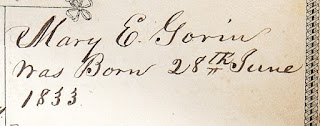 Mary E. Gorin
was Born 28th June
1833